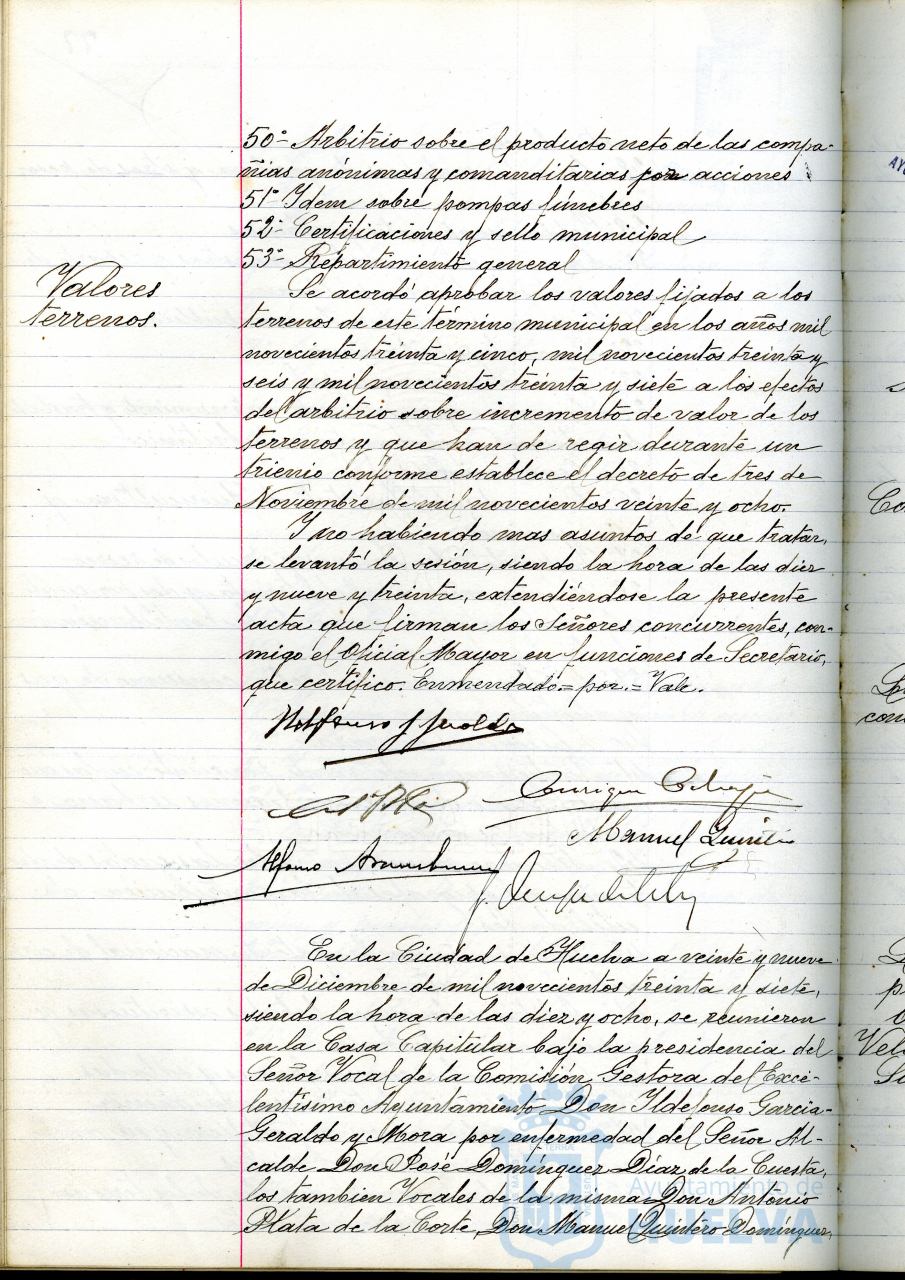 50º- Arbitrio sobre el producto neto de las compa-
ñias anónimas y comanditarias por acciones
51º Idem sobre pompas fúnebres
52º- Certificaciones y sello municipal
53º- Repartimiento general
Valores
terrenos.
Se acordó aprobar los valores fijados a los
terrenos de este término municipal en los años mil
novecientos treinta y cinco, mil novecientos treinta y
seis y mil novecientos treinta y siete a los efectos
del arbitrio sobre incremento de valor de los
terrenos y que han de regir durante un
trienio conforme establece el decreto de tres de
Noviembre de mil novecientos veinte y ocho.
Y no habiendo mas asuntos de que tratar,
se levantó la sesión, siendo la hora de las diez
y nueve y treinta, extendiéndose la presente
acta que firman los Señores concurrentes, con-
migo el Oficial Mayor en funciones de Secretario,
que certifico. Enmendado = por. = Vale.
Enrique
Manuel Quintero
Alfonso Aramburu
En la Ciudad de Huelva a veinte y nueve
de Diciembre de mil novecientos treinta y siete,
siendo la hora de las diez y ocho, se reunieron
en la Casa Capitular bajo la presidencia del
Señor Vocal de la Comisión Gestora del Exce-
lentísimo Ayuntamiento Don Ildefonso Garcia-
Geraldo y Mora por enfermedad del Señor Al-
calde Don José Domínguez Díaz de la Cuesta,
los tambien Vocales de la misma Don Antonio
Plata de la Corte, Don Manuel Quintero Domínguez,
Ayuntamiento de
HUELVA